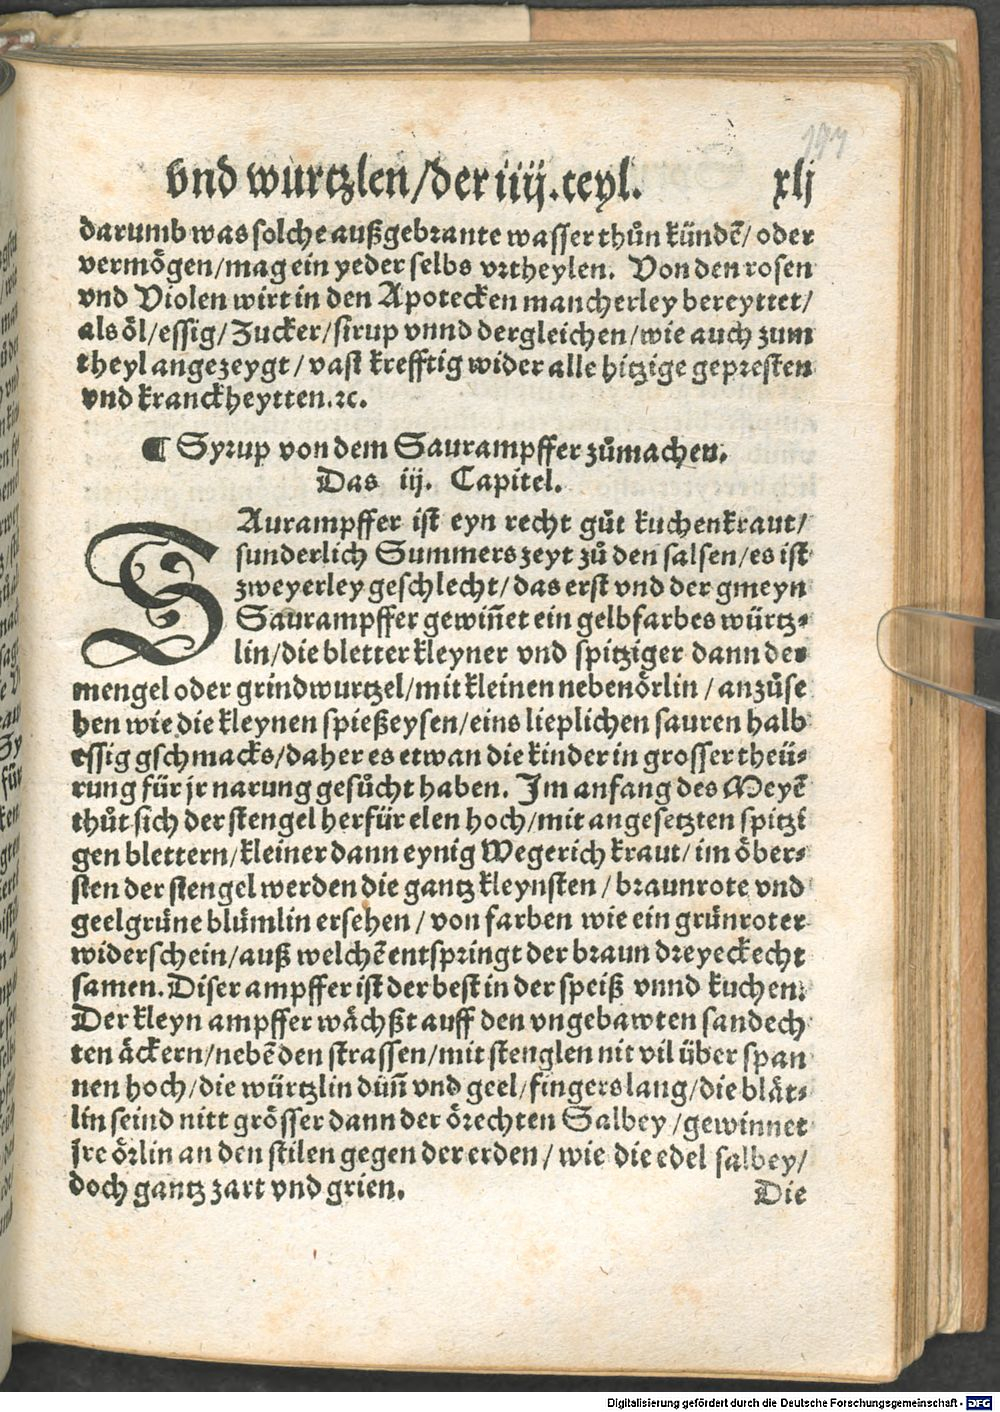 197
vnd wurtzlen/der iiij.teyl. xlj
darumb was solche außgebrante wasser thůn kündẽ/ oder
vermögen/mag ein yeder selbs vrtheylen. Von den rosen
vnd Violen wirt in den Apotecken mancherley bereyttet/
als öl/essig/Zucker/sirup vnnd dergleichen/wie auch zum
theyl angezeygt/vast krefftig wider alle hitzige gepresten
vnd kranckheytten.ꝛc.
¶ Syrup von dem Saurampffer zůmachen.
Das iij. Capitel.
SAurampffer ist eyn recht gůt kuchenkraut/
sunderlich Summerszeyt zů den salsen/es ist
zweyerley geschlecht/das erst vnd der gmeyn
Saurampffer gewiñet ein gelbfarbes würtz⸗
lin/die bletter kleyner vnd spitziger dann der
mengel oder grindwurtzel/mit kleinen nebenörlin/anzůse
hen wie die kleynen spießeysen/eins lieplichen sauren halb
essig gschmacks/daher es etwan die kinder in grosser theü⸗
rung für jr narung gesůcht haben. Im anfang des Meyẽ
thůt sich der stengel herfür elen hoch/mit angesetzten spitzi
gen blettern/kleiner dann eynig Wegerich kraut/im öber⸗
sten der stengel werden die gantz kleynsten/braunrote vnd
geelgrüne blümlin ersehen/von farben wie ein grünroter
widerschein/auß welchẽ entspringt der braun dreyeckecht
samen. Diser ampffer ist der best in der speiß vnnd kuchen.
Der kleyn ampffer wächßt auff den vngebawten sandech
ten äckern/nebẽ den strassen/mit stenglen nit vil über span
nen hoch/die würtzlin düñ vnd geel/fingers lang/die blät⸗
lin seind nitt grösser dann der örechten Salbey/gewinnet
jre örlin an den stilen gegen der erden/wie die edel salbey/
doch gantz zart vnd grien.
Die
Digitalisierung gefördert durch die Deutsche Forschungsgemeinschaft - DFG